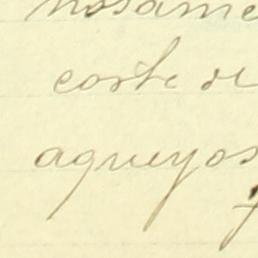 nosame
corte de
aqueyos